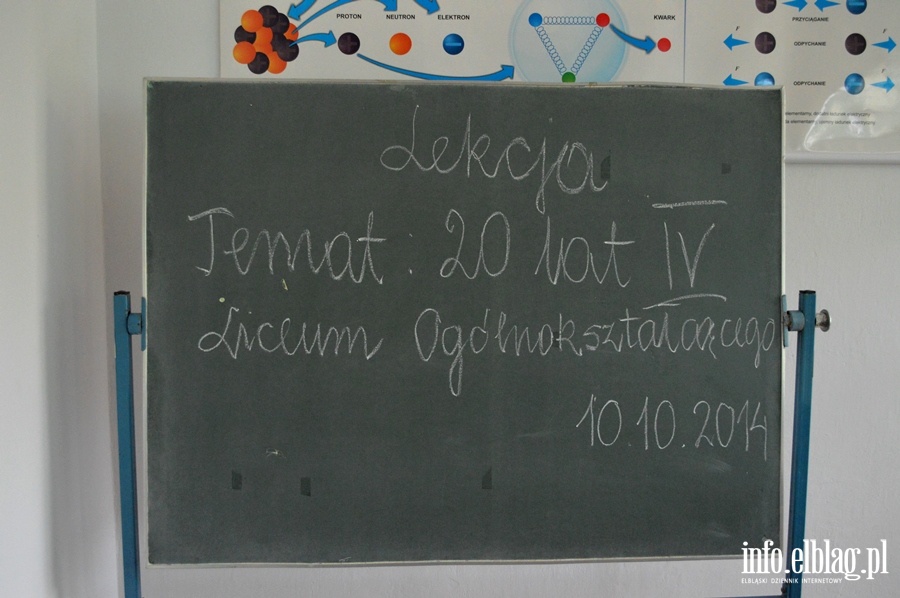 PROTON NEUTRON ELEKTRON KWARK
PRZYCIĄGANIE
F F
ODPYCHANIE
F F
ODPYCHANIE
Lekcja
Temat: 20 lat IV
Liceum Ogólnokształcącego
10.10.2014
info.elblag.pl
ELBLĄSKI DZIENNIK INTERNETOWY